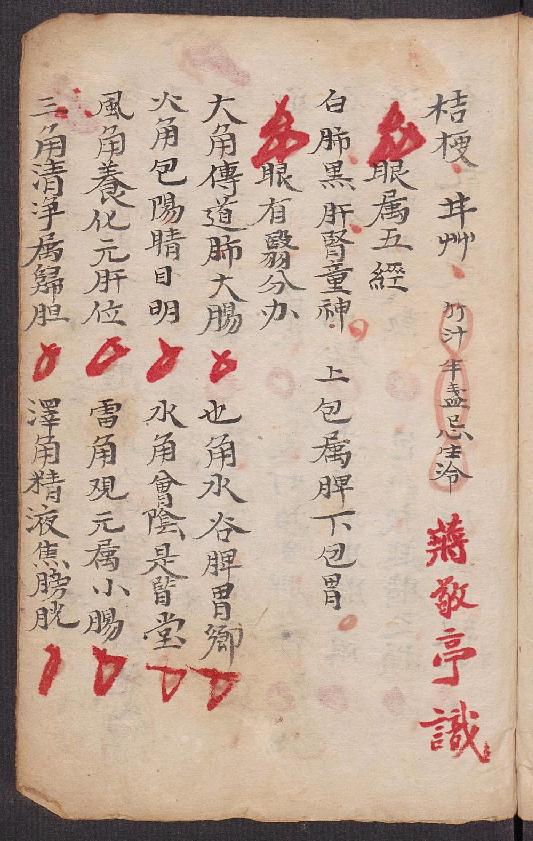 桔梗 甘艸 竹汁半盞忌生冷 蔣敬亭識
眼属五經
白肺黒肝腎童神 上包属脾下包胃
眼有翳分办
大角傳道肺大腸 也角水谷脾胃鄉
火角包陽睛目明 水角會陰是腎堂
風角養化元肝位 雷角观元属小腸
三角清淨属歸胆 澤角精液焦膀胱